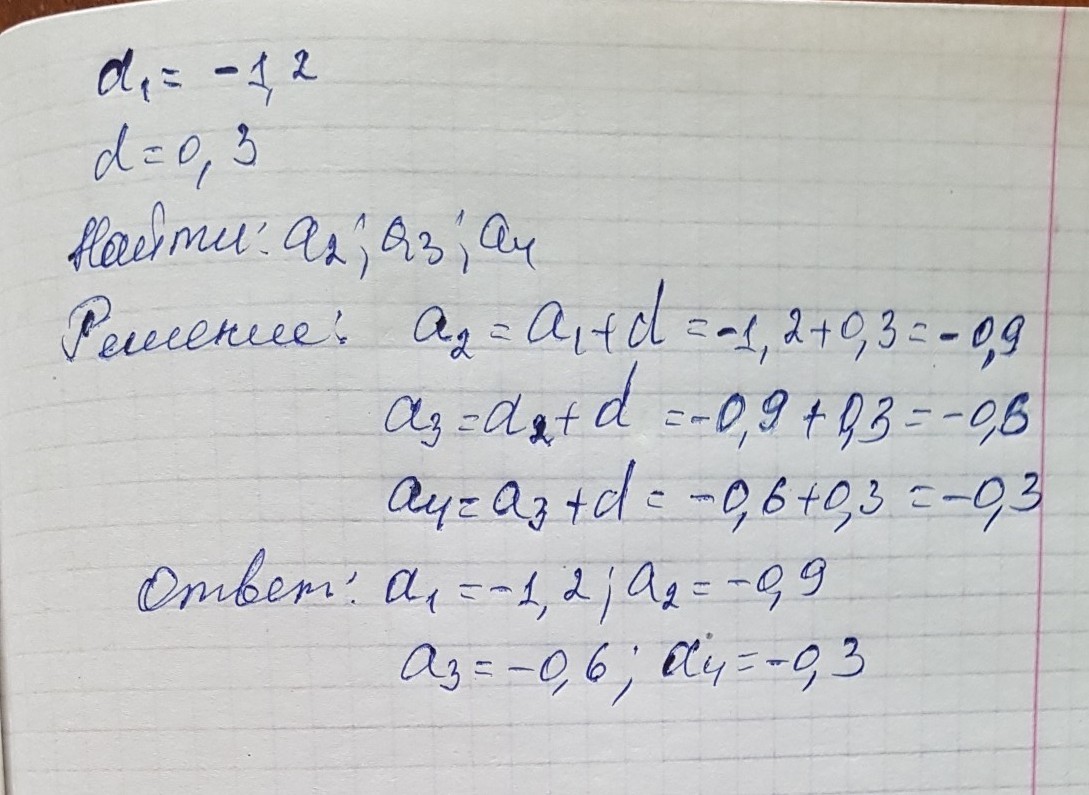 a₁ = -1,2
d = 0,3
Найти: a₂; a₃; a₄
Решение: a₂ = a₁ + d = -1,2 + 0,3 = -0,9
a₃ = a₂ + d = -0,9 + 0,3 = -0,6
a₄ = a₃ + d = -0,6 + 0,3 = -0,3
Ответ: a₁ = -1,2; a₂ = -0,9
a₃ = -0,6; a₄ = -0,3